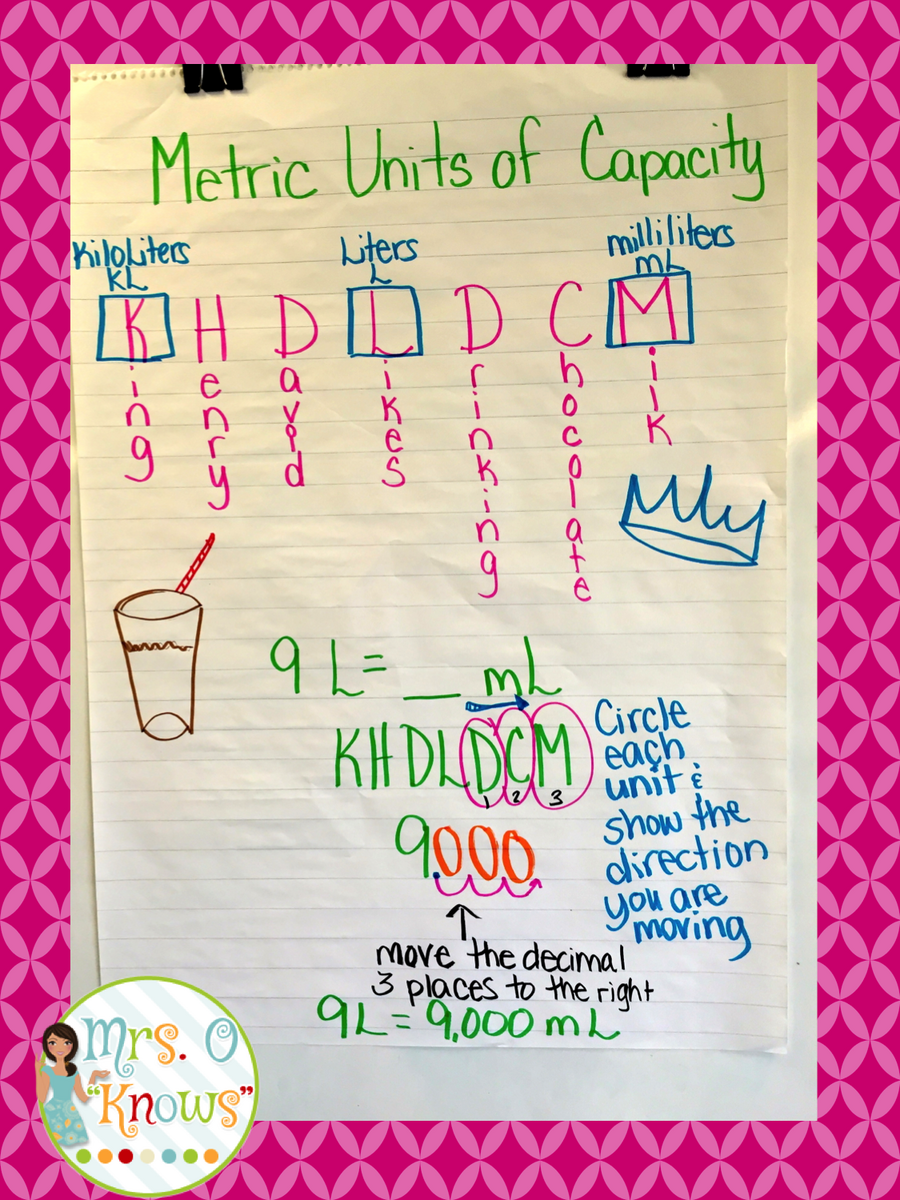 Metric Units of Capacity
KiloLiters
KL
Liters
L
milliliters
mL
King
Henry
David
Likes
Drinking
Chocolate
Milk
9 L = __ mL
KHDLDCM
1 2 3
9000
Circle
each
unit &
show the
direction
you are
moving
move the decimal
3 places to the right
9L = 9,000 mL
Mrs. O
"Knows"